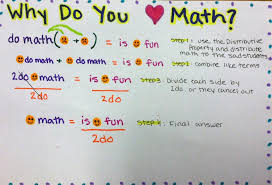 Why Do You ❤ Math?
do math(☹ + ☹) = is ☹ fun
Step 1: use the Distributive Property and distribute math to the sad students
☹do math + ☹do math = is ☹ fun
Step 2: combine like terms
2do ☹ math = is ☹ fun
2do 2do
Step 3: Divide each side by 2do, or they cancel out
☹ math = is ☹ fun
2do
Step 4: Final answer